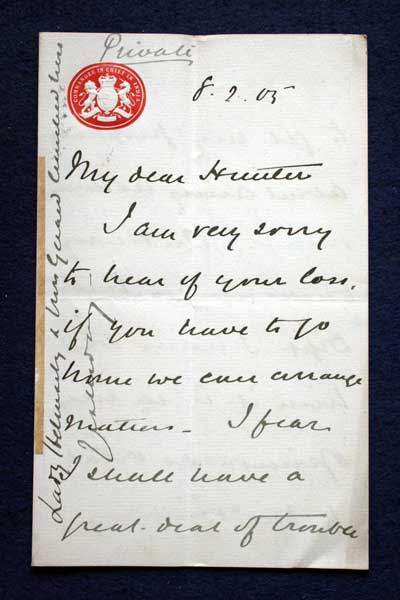 Private
COMMANDER IN CHIEF IN INDIA
8.2.05
My dear Hunter
I am very sorry
to hear of your loss,
if you have to go
home we can arrange
matters_ I fear
shall have a
great-deal of trouble
Lady & Mrs Gerard lunched here
yesterday